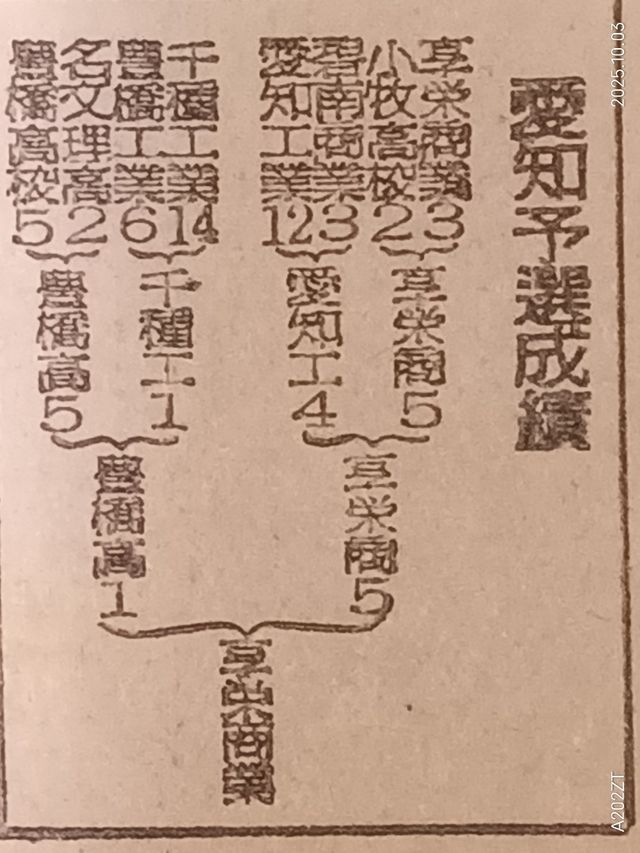 愛知予選成績
享栄商業3
小牧高校2
碧南商業3
愛知工業12
千種工業14
豊橋工業6
名文理高2
豊橋高校5
享栄商5
愛知工4
千種工1
豊橋高5
享栄商5
豊橋高1
享栄商業
2025.10.03
A202ZT